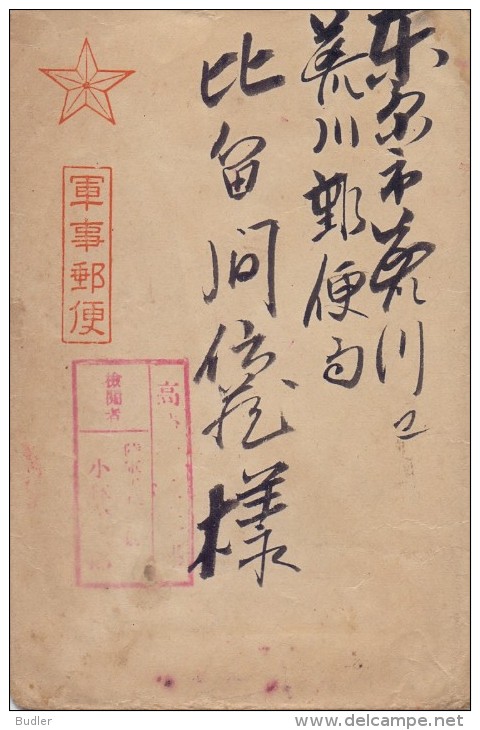 東京市荒川区
荒川郵便局
比留間信蔵様
軍事郵便
高
検閲者
小
Budler
delcampe.net